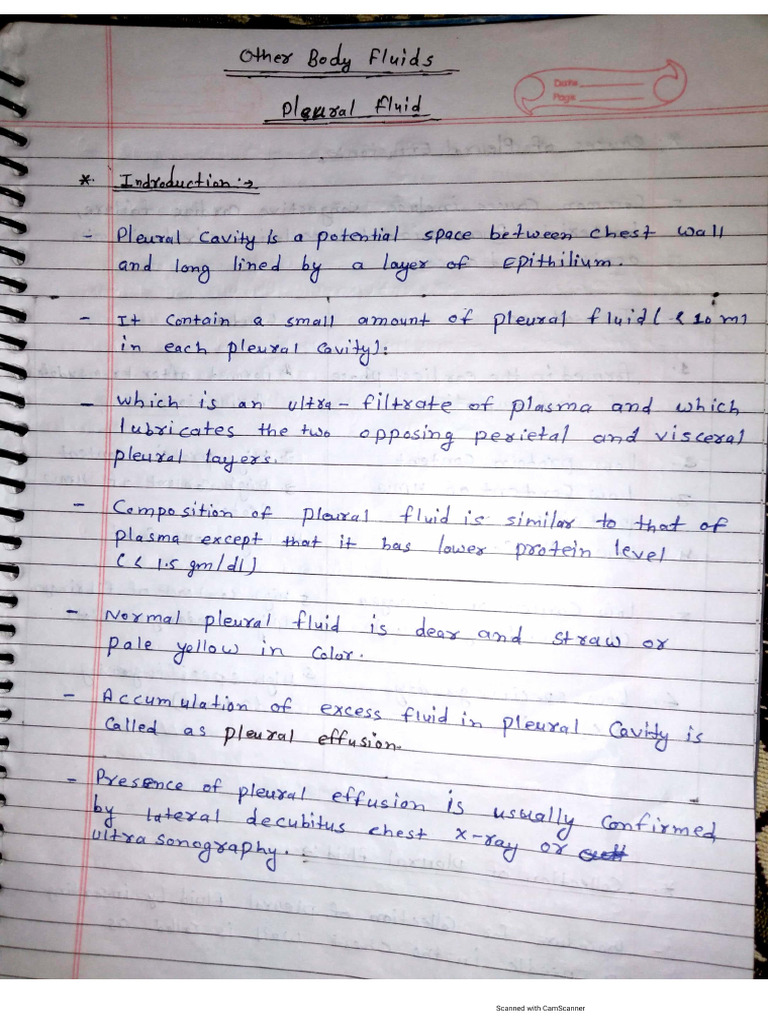 Other Body Fluids
Pleural Fluid
Date
Page
* Indroduction :→
- Pleural Cavity Is a potential space between chest wall
and long lined by a layer of Epithilium.
- It contain a small amount of pleural fluid ( < 10 ml
in each pleural cavity):
- which is an ultra-filtrate of plasma and which
lubricates the two opposing perietal and visceral
pleural layers.
- Composition of pleural fluid is similar to that of
plasma except that it has lower protein level
( < 1.5 gm/dl)
- Normal pleural fluid is clear and straw or
pale yellow in color.
- Accumulation of excess fluid in pleural Cavity is
called as pleural effusion.
- Presence of pleural effusion is usually confirmed
by lateral decubitus chest x-ray or
ultra sonography.
Scanned with CamScanner